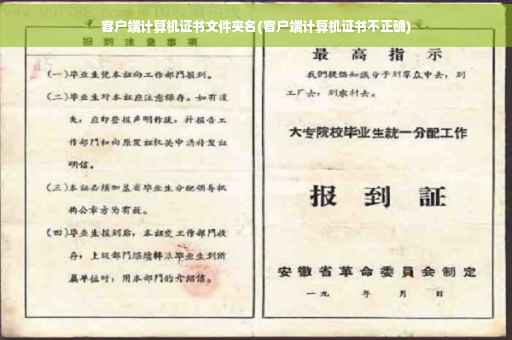 客户端计算机证书文件夹名(客户端计算机证书不正确)
报到注意事项
(一)毕业生凭本证向工作部门报到。
(二)毕业生对本证应注意保存。如有遗
失,应即登报声明作废,并报告工
作部门和向原发证机关申请补发证
明信。
(三)本证必须加盖省毕业生分配领导机
构公章方为有效。
(四)毕业生报到后,本证交工作部门收
存;上级部门继续转派毕业生到所
属单位时,用本部门的介绍信。
最高指示
我们提倡知识分子到群众中去,到
工厂去,到农村去。
大专院校毕业生統一分配工作
报到証
安徽省革命委員会制定
一九 年 月 日